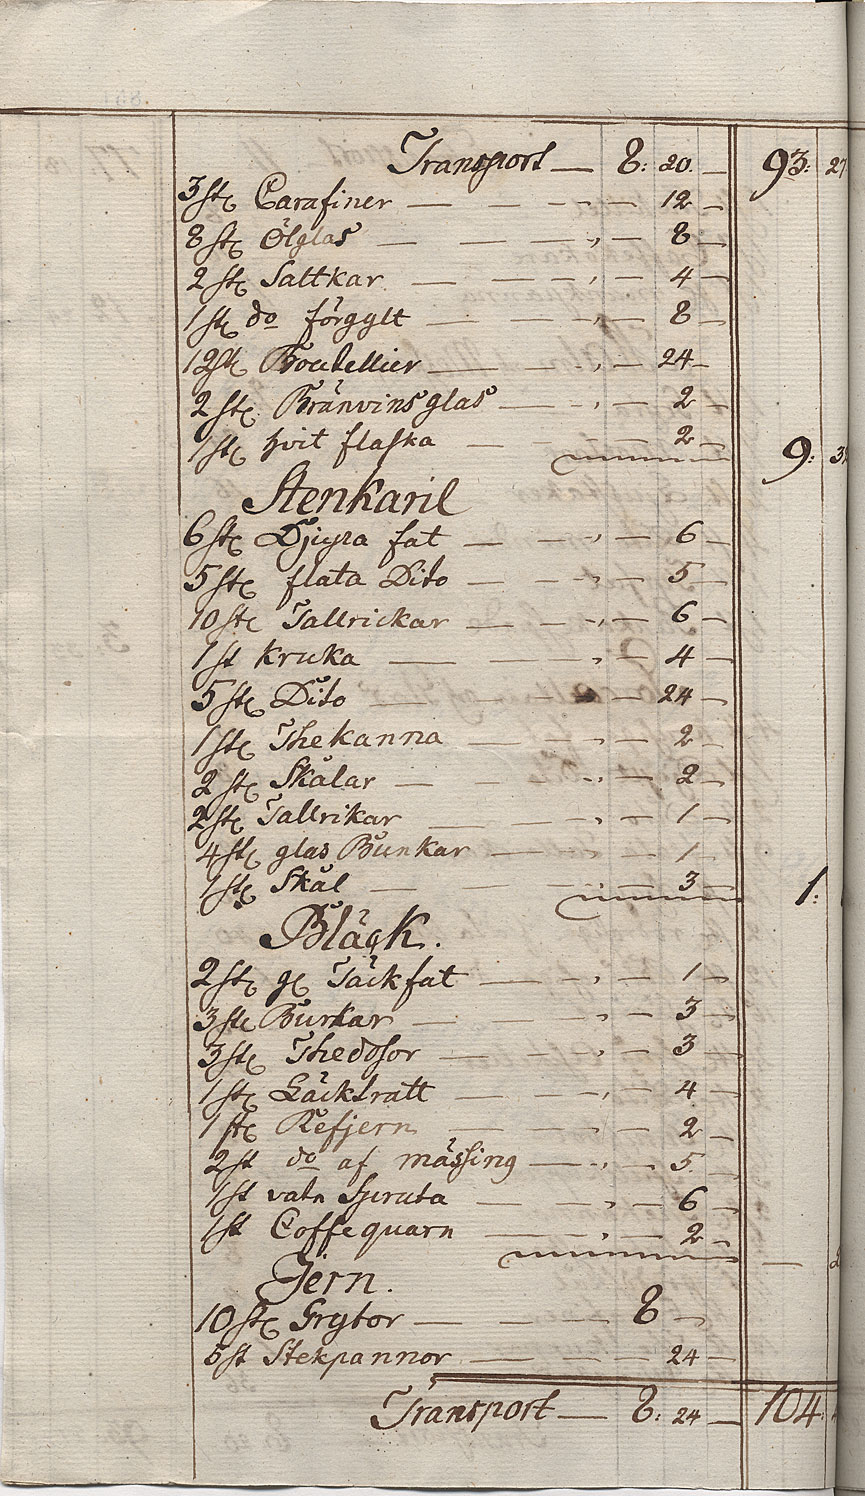 Transport — 8: 20. — 93: 27
3 stc Carafiner — — — 12 —
8 stc Ölglas — — — „ — 8 —
2 stc Saltkar — — „ — 4 —
1 stc do förgylt — — „ — 8 —
12 stc Boutellier — — „ — 24 —
2 stc Bränvins glas — — „ — 2 —
1 stc hvit flaska — — — 2 — 9: 32
Stenkäril
6 stc Djupa fat — — „ — 6 —
5 stc flata Dito — — „ — 5 —
10 stc Tallrickar — — „ — 6 —
1 st kruka — — „ — 4 —
5 stc Dito — — — 24 —
1 stc The kanna — — „ — 2 —
2 stc Skålar — — „ — 2 —
2 stc Tallrikar — — „ — 1 —
4 stc glas Bunkar — — — 1 —
1 stc Skål — — — 3 — 1:
Bläck.
2 stc Täckfat — — „ — 1 —
3 stc Burkar — — „ — 3 —
3 stc Thedosor — — „ — 3 —
1 stc — — „ — 4 —
1 stc Refjern — — — 2 —
2 st do af mässing — — „ — 5 —
1 st vatn Spruta — — „ — 6 —
1 st Coffe quarn — — „ — 2 —
Jern.
10 stc Grytor — — — 8
5 st Stekpannor — — — 24 —
Transport — 8: 24 — 104: